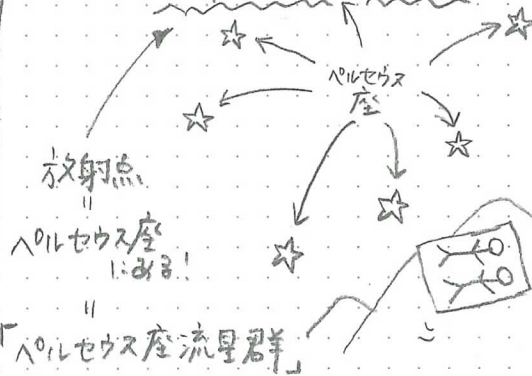 ペルセウス
座
放射点
=
ペルセウス座
にある!
=
「ペルセウス座流星群」